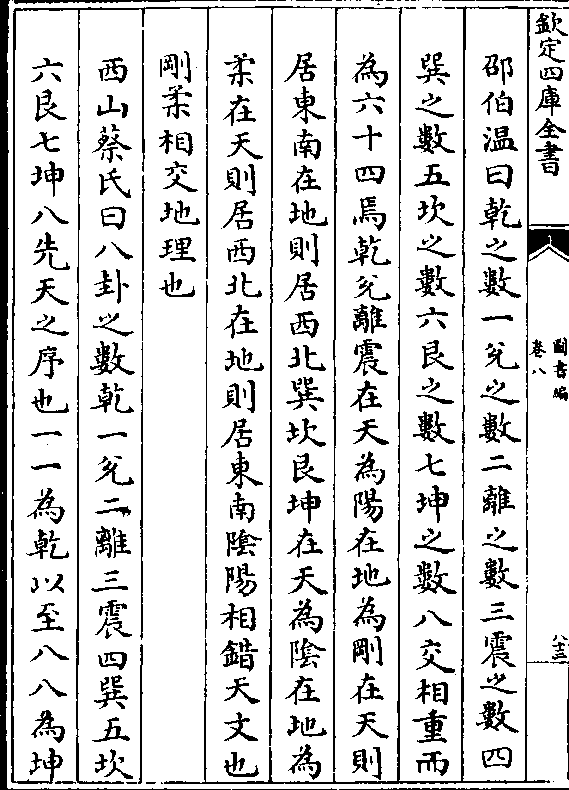 欽定四庫全書
圖書編
卷八
八十三
邵伯温曰乾之數一兊之數二離之數三震之數四
巽之數五坎之數六艮之數七坤之數八交相重而
為六十四焉乾兊離震在天為陽在地為剛在天則
居東南在地則居西北巽坎艮坤在天為陰在地為
柔在天則居西北在地則居東南陰陽相錯天文也
剛柔相交地理也
西山蔡氏曰八卦之數乾一兊二離三震四巽五坎
六艮七坤八先天之序也一一為乾以至八八為坤